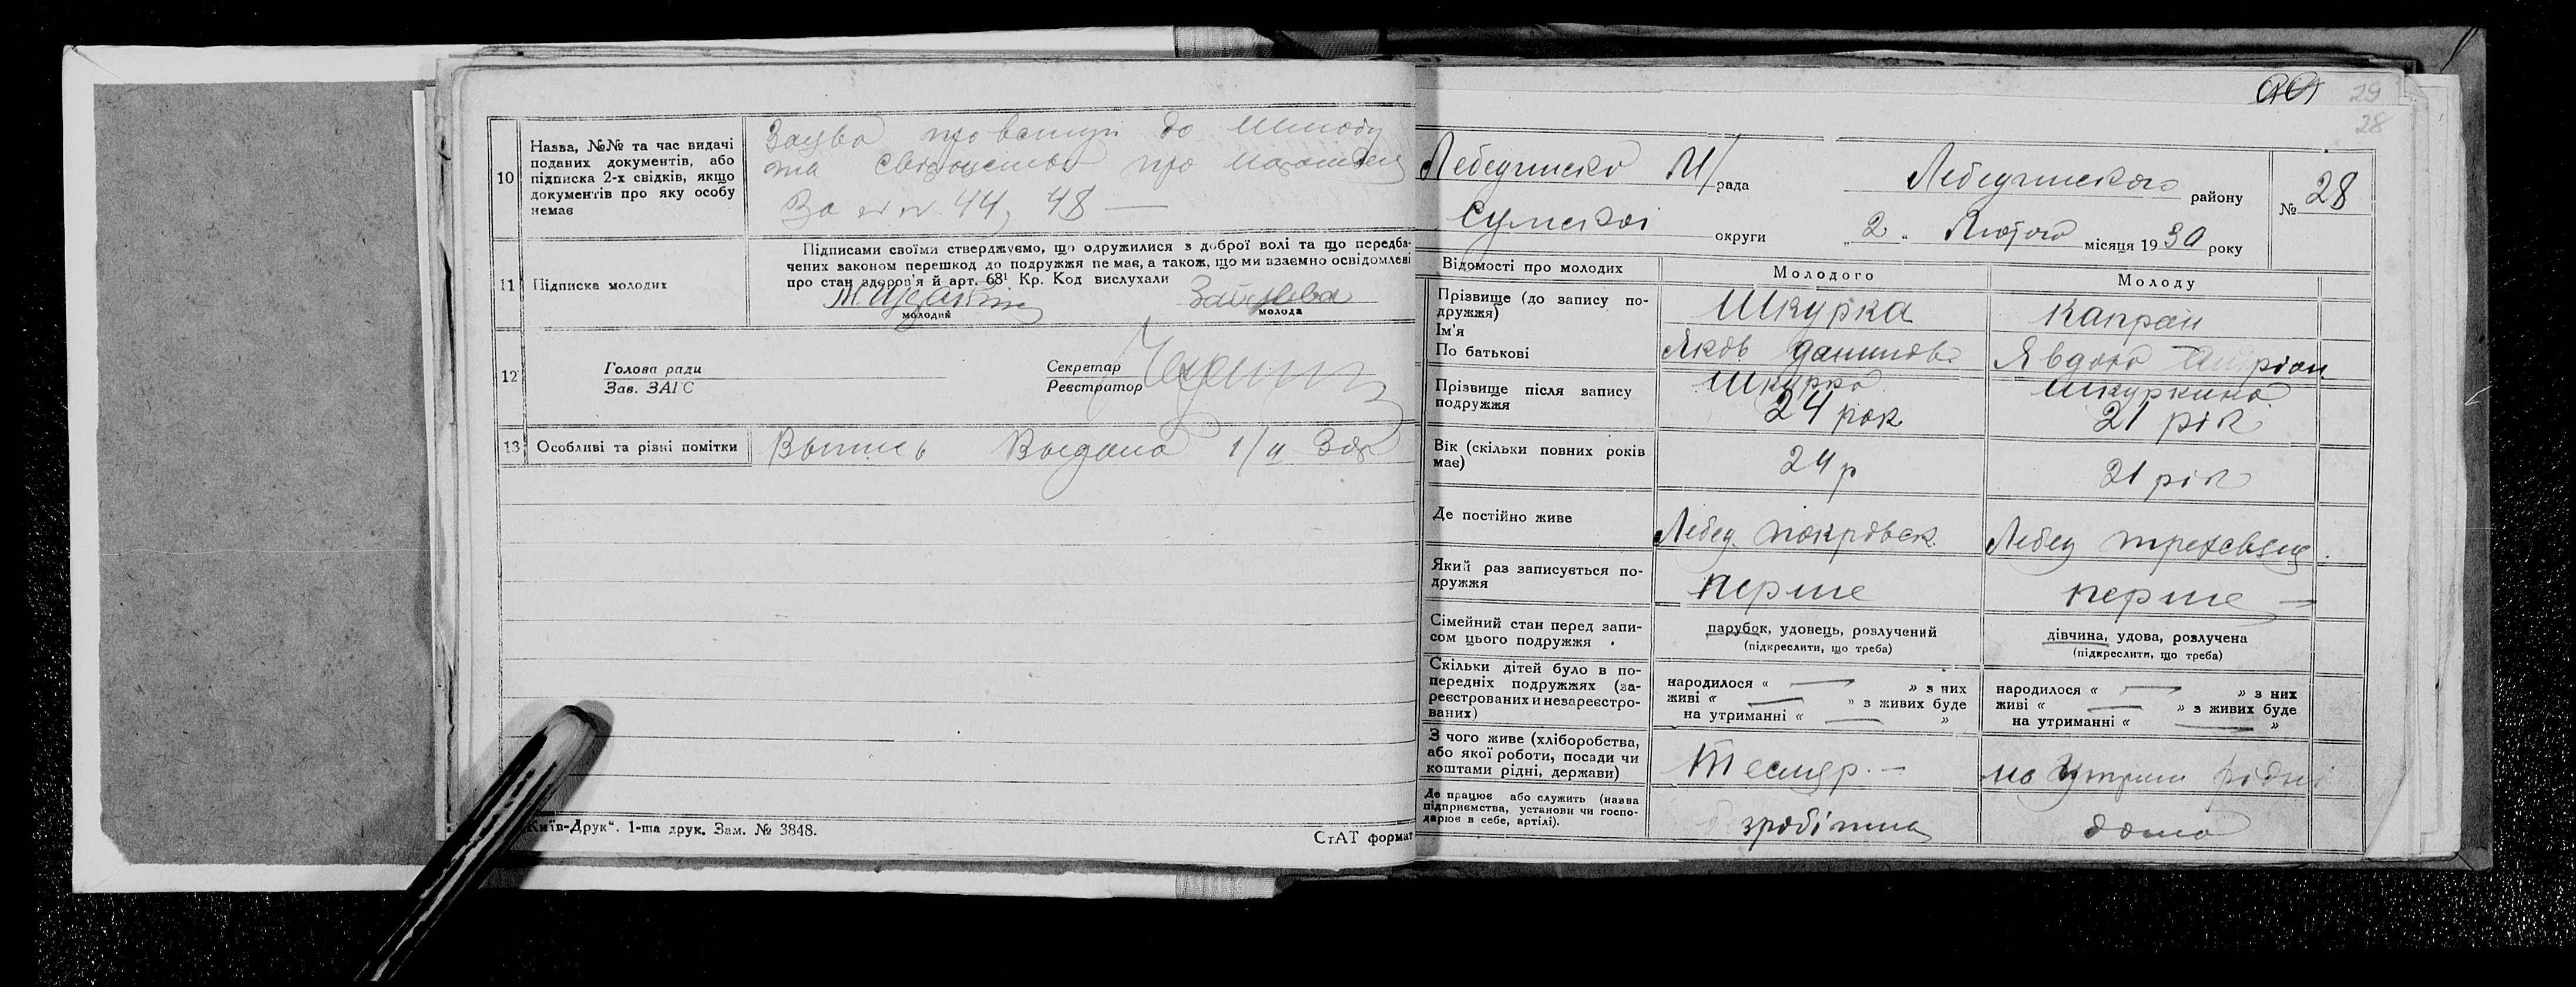 10 Назва, №№ та час видачі
поданих документів, або
підписка 2-х свідків, якщо
документів про яку особу
немає
про вступ до шлюбу
та про
За 44, 48 —
11 Підписка молодих
Підписами своїми стверджуємо, що одружилися з доброї волі та що передба-
чених законом перешкод до подружжя немає, а також, що ми взаємно освідомлені
про стан здоров'я й арт. 68¹ Кр. Код вислухали
молодий
Зайцева
молода
12 Голова ради
Зав. ЗАГС
Секретар
Реєстратор
13 Особливі та різні помітки
Выпись Выдана 1/II 30р
„Київ-Друк“. 1-ша друк. Зам. № 3848.
СтАТ формат
29
28
Лебединська М/рада
Лебединського району
№ 28
Сумської округи
„2„ Лютого місяця 1930 року
Відомості про молодих
Молодого
Молоду
Прізвище (до запису по-
дружжя)
Ім'я
По батькові
Шкурка
Капран
Яков Данилов.
Явдоха
Прізвище після запису
подружжя
Шкурка
24 рок
Шкуркина
21 рік
Вік (скільки повних років
має)
24 р
21 рік
Де постійно живе
Лебед покровск.
Лебед
Який раз записується по-
дружжя
перше
перше —
Сімейний стан перед запи-
сом цього подружжя
парубок, удовець, розлучений
(підкреслити, що треба)
дівчина, удова, розлучена
(підкреслити, що треба)
Скільки дітей було в по-
передніх подружжях (за-
реєстрованих и незареєстро-
ваних)
народилося « — » з них
живі « — » з живих буде
на утриманні « — »
народилося « — » з них
живі « — » з живих буде
на утриманні « — »
З чого живе (хліборобства,
або якої роботи, посади чи
коштами рідні, держави)
Тесляр. —
на утрим рідні
Де працює або служить (назва
підприємства, установи чи госпо-
дарює в себе, артілі).
дома